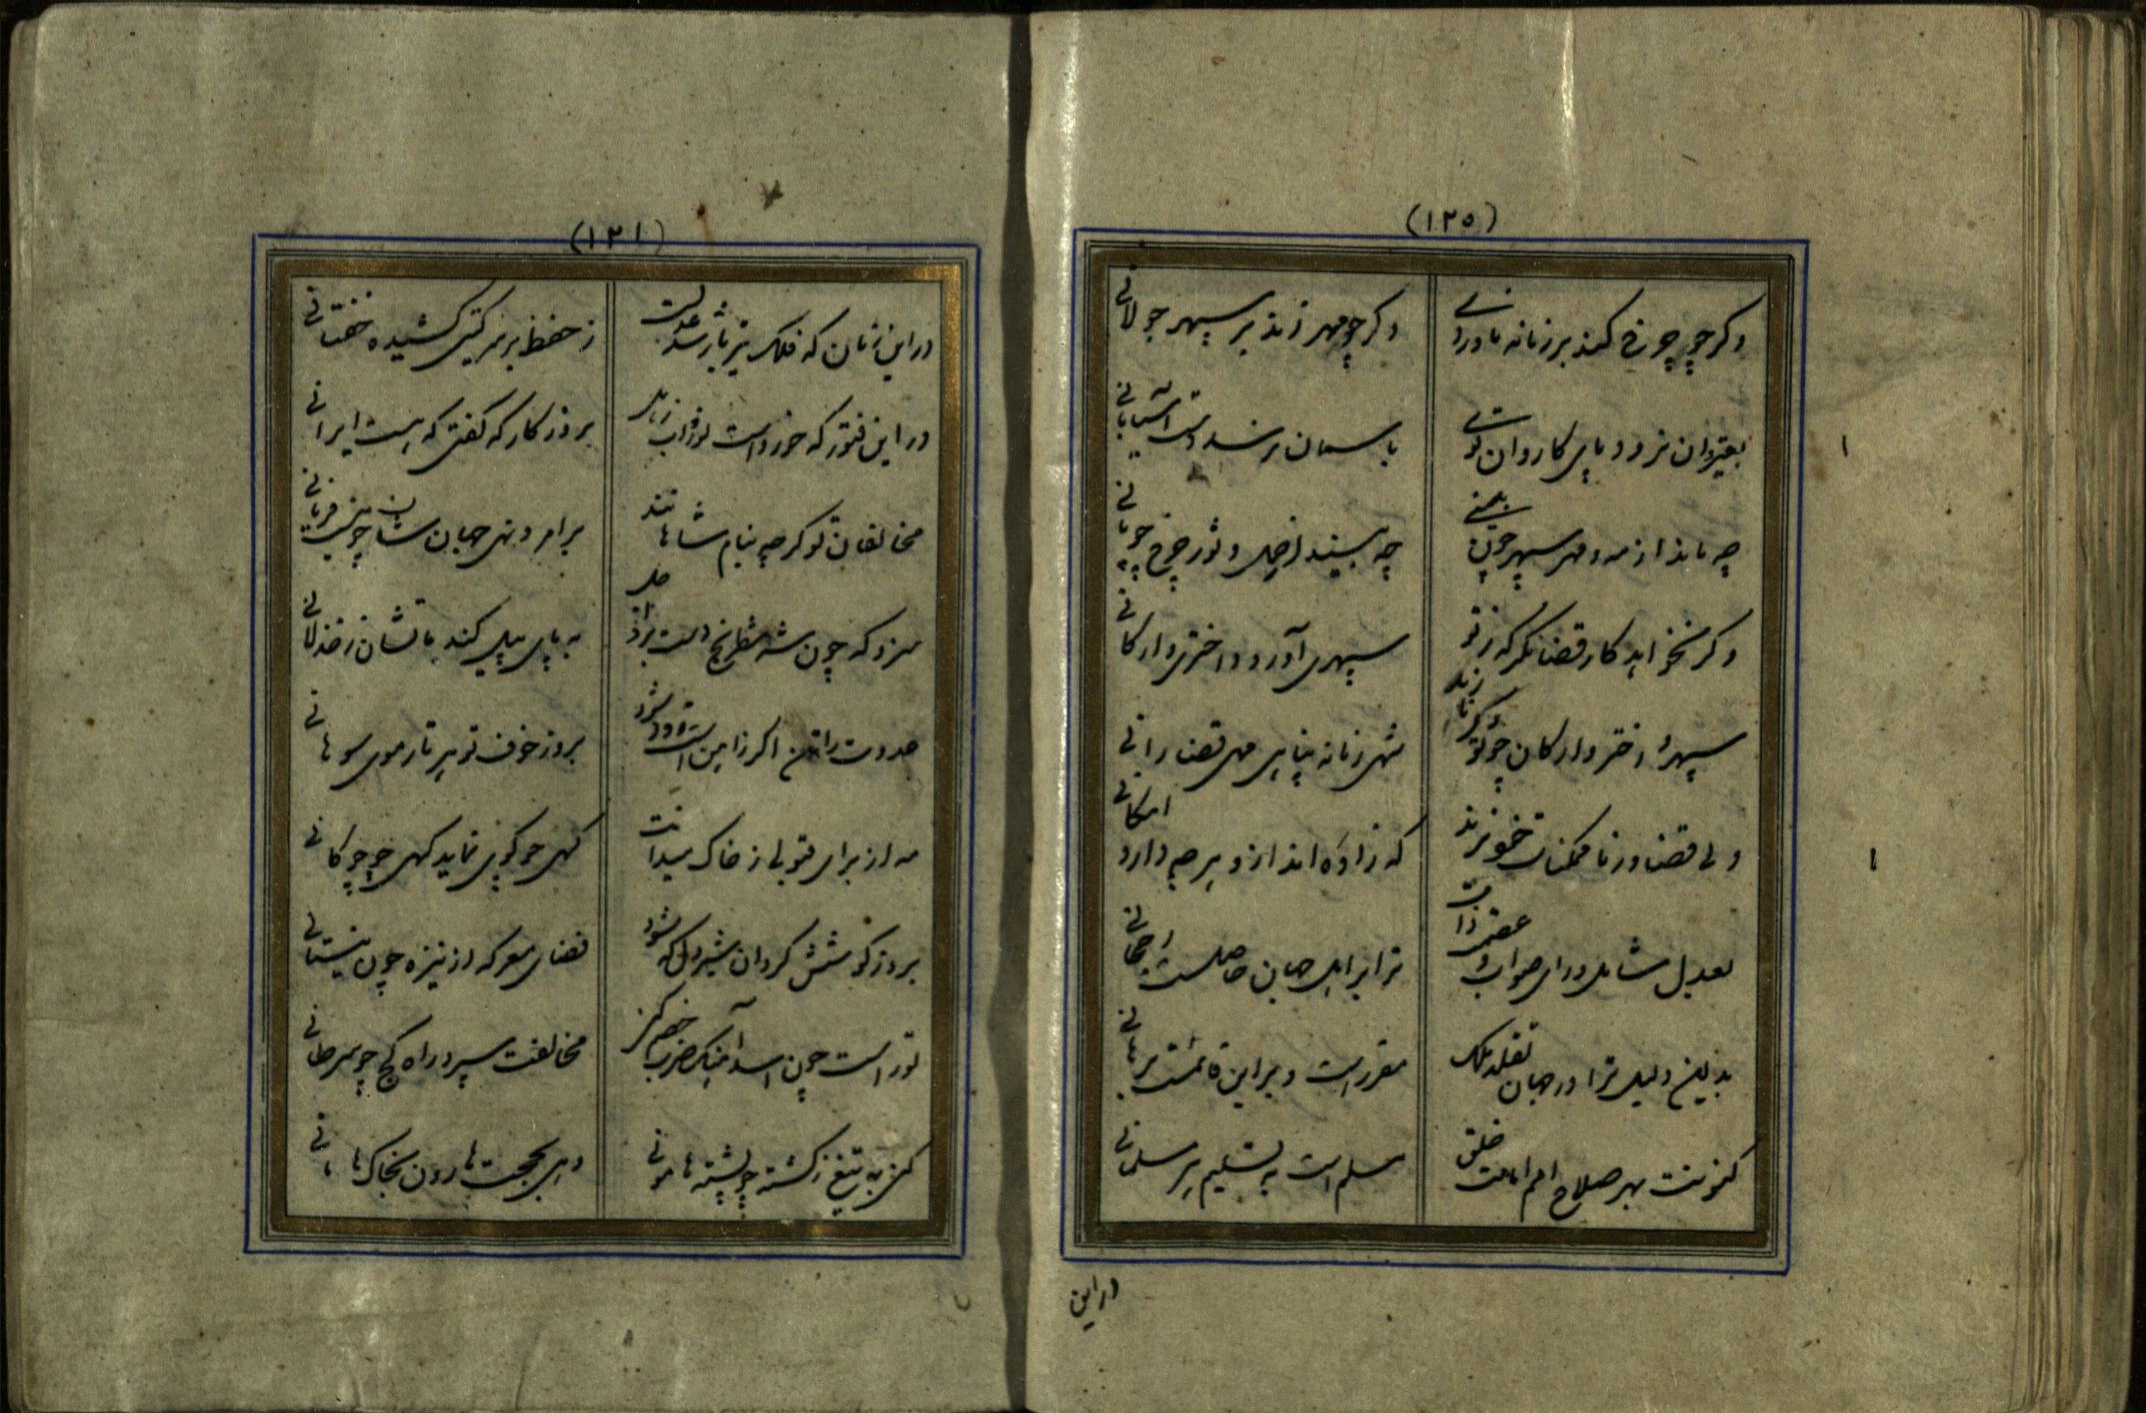 (۱۲۵)
وکر چو چرخ کند بر زمانه ناوردی
وکر چو مهر زند بر سپهر جولانی
بقیروان نرود پای کاروان توئی
باسمان نرسد دست آسیابانی
چه ماند از مه و مهر سپهر چون بهمنی
چه بیند از حمل و ثور چرخ چوپانی
وکر نخواهد کار قضا نکر که ز تو
سپهری آورد و اختری و ارکانی
سپهر و اختر و ارکان چو تو دکر نارند
شهی زمانه پناهی مهی قضا رانی
ولی قضا و رنا ممکنات خود نرند
که زاوه اند از و هر چه دارد امکانی
بعدل شامل و رای صواب و عقب ذات
ترا بر اهل جهان حاصلست رجحانی
بدین دلیل ترا در جهان تقلد ملک
مقرر است و بر این قائمست برهانی
کنونت بهر صلاح امم امامت خلق
مسلم است به تسلیم هر مسلمانی
در این
(۱۲۱)
در این زمان که فلک نیز باز شد عدلت
ز حفظ بر سر کیتی کشیده خفتانی
در این فتور که خورداست نوزواب
بروز کار که کفتی که هست ایرانی
مخالفان تو کر چه بنام شاهانند
بر امر و نهی جهان شان چو نیست فرمانی
سزد که چون شه شطرنج دست براند
به پای پیل کند ماتشان ز خذلانی
عدوت را تن اکر ز آهن است نرود
بروز خوف تو هر تار موی سوهانی
مه از برای قبولی ز خاک میدانت
کهی چو کوی نماید کهی چو چوکانی
بروز کوشش کردان شیر دل که شود
فضای معرکه از نیزه چون نیستانی
توراست چون اسد آهنک حرب خصم کز
مخالفت سپرد راه کج چو سرطانی
کنی به تیغ ز کشته چو پشته هامونی
دهی بحجت هارون بخاک هامانی